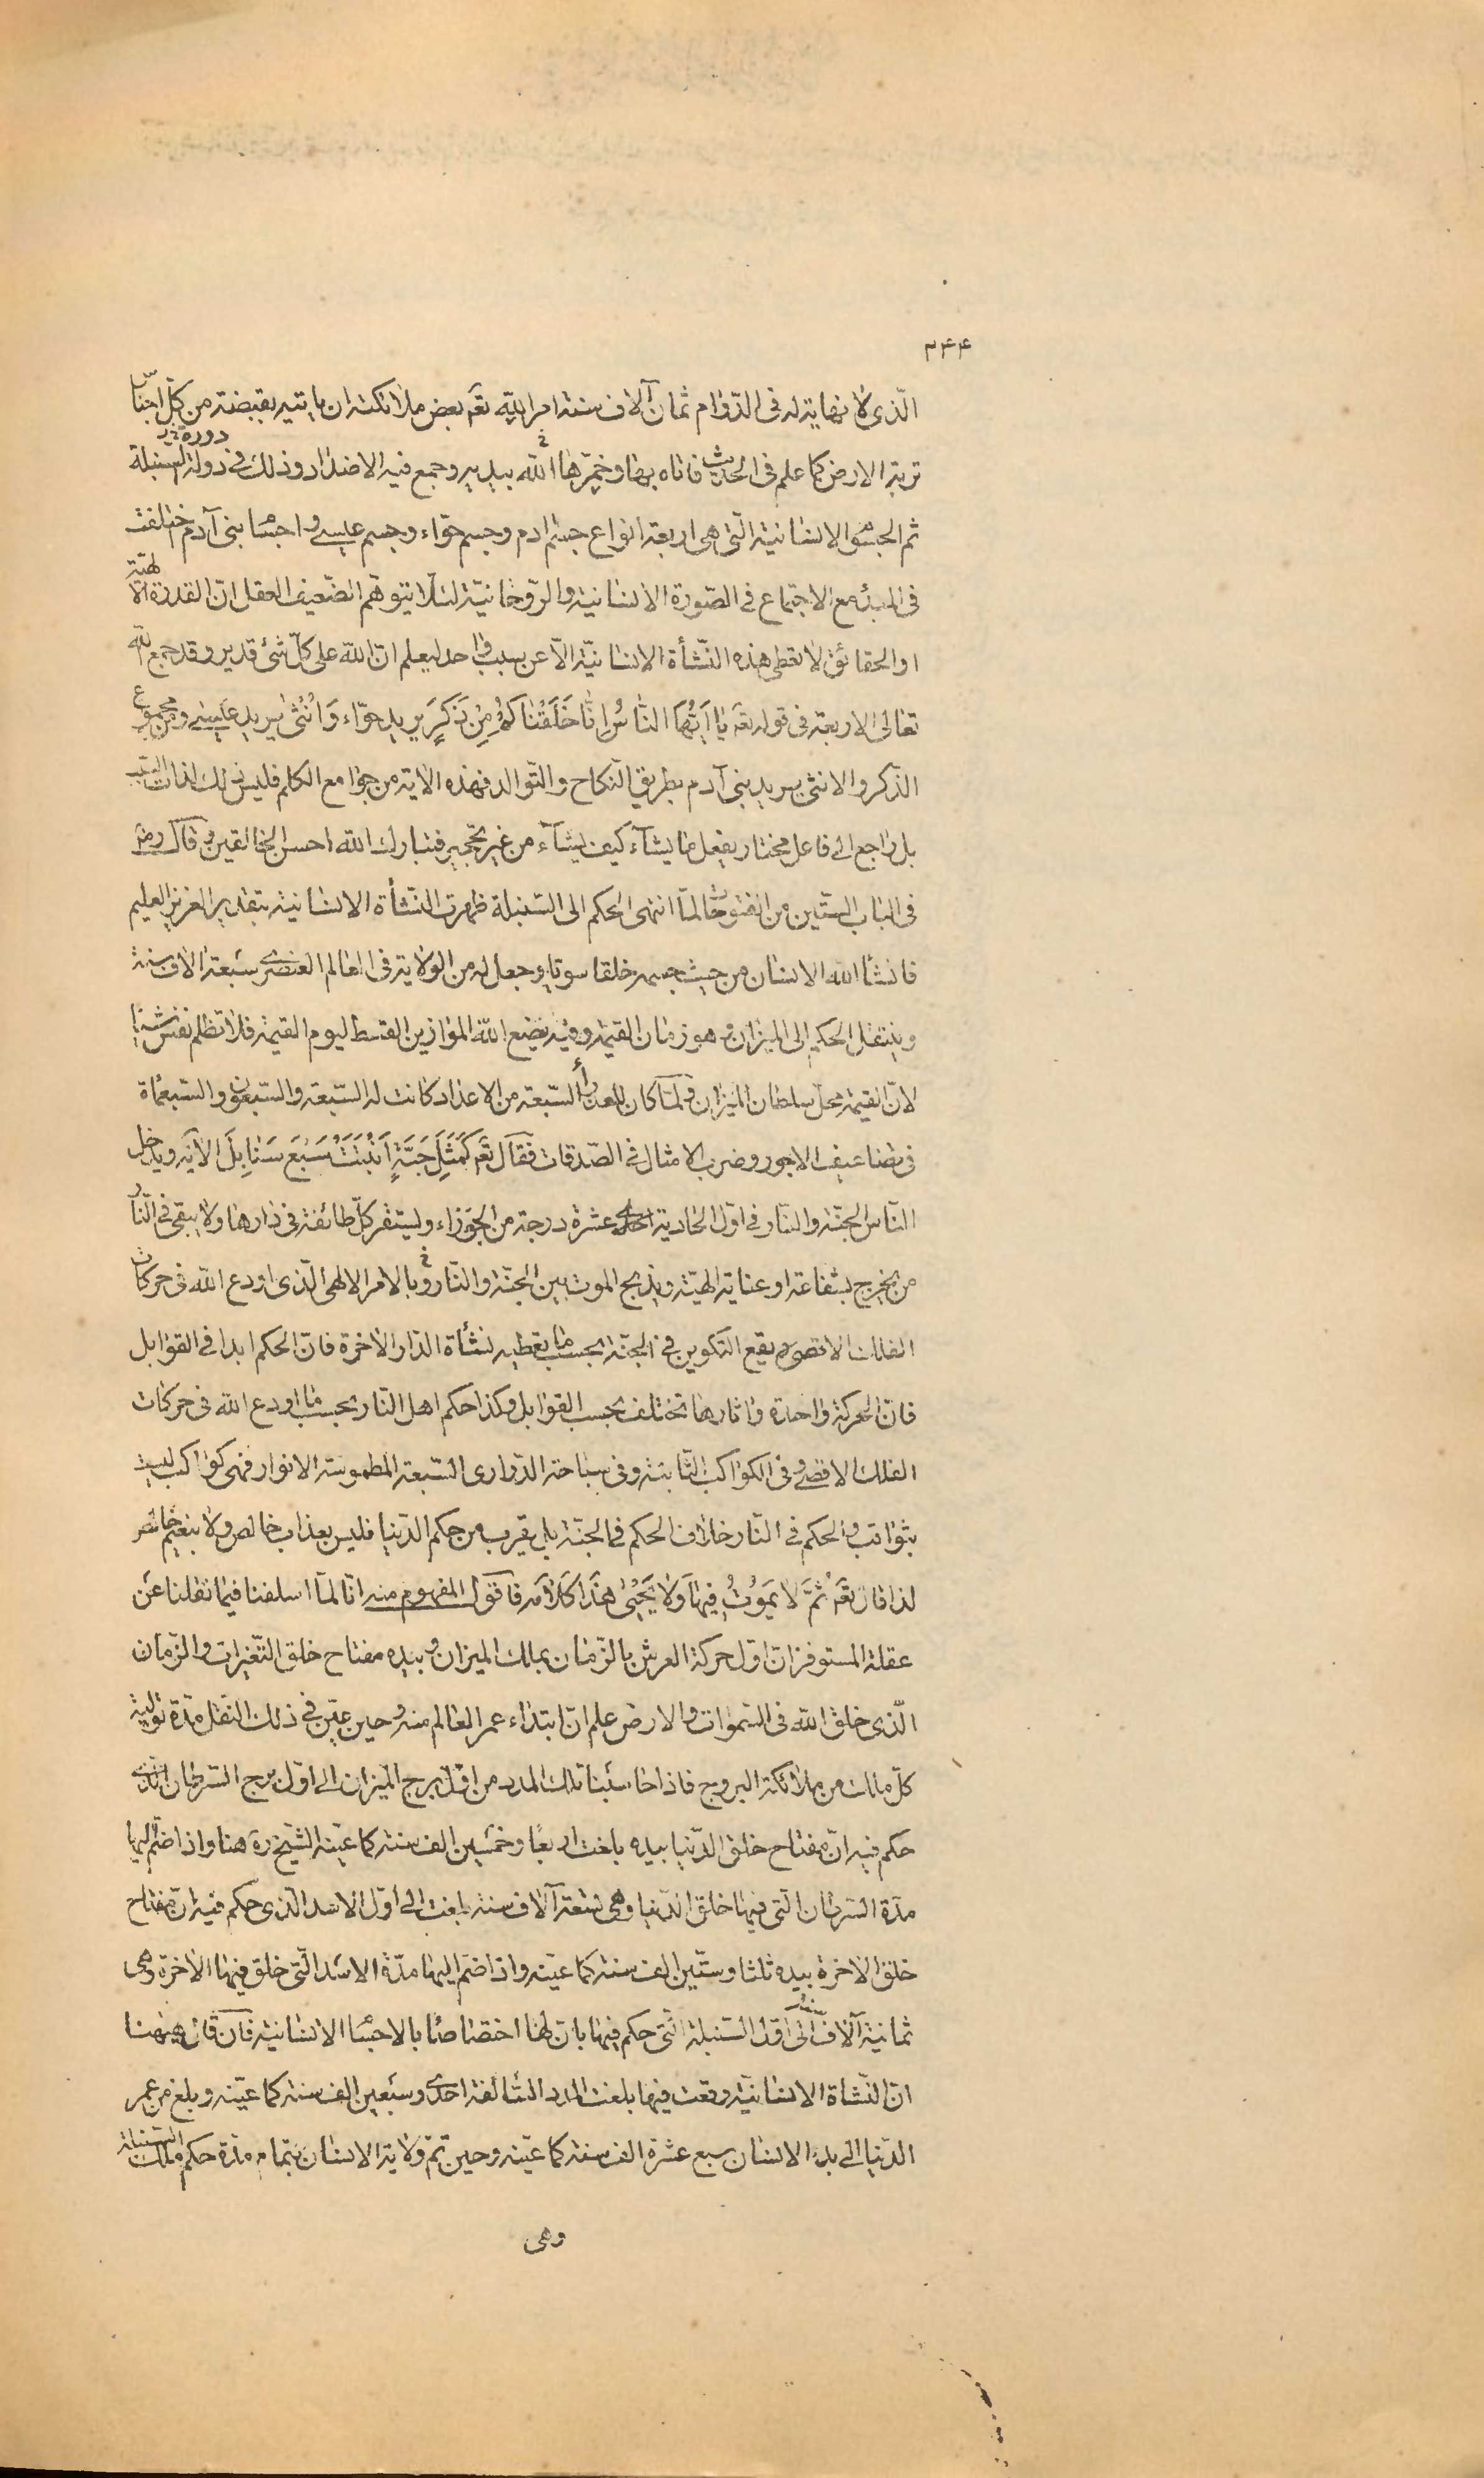 ۲۴۴
الّذى لا نهاية له فى الدّوام ثمان آلاف سنة امر اللّه تعه بعض ملائكته ان ياتيه بقبضة من كلّ اجناس
دورة خ
تربة الارض كما علم فى الحديث فاتاه بها وخمّرها اللّه بيديه وجمع فيه الاضداد وذلك فى دولة السنبلة
ثم الجسوم الانسانية الّتى هى اربعة انواع جسم ادم وجسم حوّاء وجسم عيسى واجسام بنى آدم خلقت
فى المبدء مع الاجتماع فى الصّورة الانسانية والرّوحانيّة لئلّا يتوهّم الضّعيف العقل انّ القدرة الالهيّة
او الحقائق لا تعطى هذه النّشأة الانسانيّة الّا عن سبب واحد ليعلم انّ اللّه على كلّ شئ قدير وقد جمع اللّه
تعالى الاربعة فى قوله تعه يا اَيُّهَا النّاسُ اِنّا خَلَقْناكُمْ مِنْ ذَكَرٍ يريد حوّاء وَاُنْثى يريد عيسى ومن مجموع
الذّكر والانثى يريد بنى آدم بطريق النّكاح والتّوالد فهذه الاية من جوامع الكلم فليس ذلك لذات السّبب
بل راجع الى فاعل مختار يفعل ما يشآء كيف يشآء من غير تحجير فتبارك اللّه احسن الخالقين وقال رضه
فى الباب الستّين من الفتوحات لمّا انتهى الحكم الى السّنبلة ظهرت النّشأة الانسانية بتقدير العزيز العليم
فانشأ اللّه الانسان من حيث جسمه خلقا سويّا وجعل له من الولاية فى العالم العنصرى سبعة الاف سنة
وينتقل الحكم الى الميزان وهو زمان القيمة وفيه يضع اللّه الموازين القسط ليوم القيمة فلا تظلم نفس شيئا
لانّ القيمة محلّ سلطان الميزان ولمّا كان للعذراء السّبعة من الاعداد كانت له السّبعة والسّبعون والسّبعمأة
فى تضاعيف الاجور وضرب الامثال فى الصّدقات فقال تعه كَمَثَلِ حَبَّةٍ اَنْبَتَتْ سَبْعَ سَنابِلَ الآية ويدخل
النّاس الجنّة والنّار فى اوّل الحادية احدى عشرة درجة من الجوزاء ويستقر كلّ طائفة فى دارها ولا يبقى فى النّار
من يخرج بشفاعة او عناية الهيّة ويذبح الموت بين الجنّة والنّار وبالامر الالهى الّذى اودع اللّه فى حركات
الفلك الاقصى ويقع التكوين فى الجنّة بحسب ما يعطيه نشأة الدّار الاخرة فانّ الحكم ابدا فى القوابل
فانّ الحركة واحدة واثارها تختلف بحسب القوابل وكذا حكم اهل النّار بحسب ما اودع اللّه فى حركات
الفلك الاقصى وفى الكواكب الثّابتة وفى سباحة الدّرارى السّبعة المطموسة الانوار فهى كواكب ليست
بثواقب والحكم فى النّار خلاف الحكم فى الجنّة بل يقرب من حكم الدّنيا فليس بعذاب خالص ولا بنعيم خالص
لذا قال تعه ثُمَّ لا يَمُوتُ فِيها وَلا يَحْيى هذا كلامه فاقول المفهوم منه انّا لمّا اسلفنا فيما نقلنا عن
عقلة المستوفز ان اوّل حركة العرش بالزّمان بملك الميزان وبيده مفتاح خلق التّغيرات والزّمان
الّذى خلق اللّه فى السّموات والارض علم انّ ابتداء عمر العالم منه وحين عيّن فى ذلك النقل مدّة تولية
كلّ ملك من ملائكة البروج فاذا حاسبنا تلك المدد من اوّل برج الميزان الى اوّل برج السّرطان الّذى
حكم فيه انّ مفتاح خلق الدّنيا بيده بلغت اربعًا وخمسين الف سنة كما عيّنه الشّيخ ره هنا واذا ضمّ اليها
مدّة السّرطان الّتى فيها خلق الدّنيا وهى تسعة آلاف سنة بلغت الى اوّل الاسد الّذى حكم فيه انّ مفتاح
خلق الاخرة بيده ثلثا وستّين الف سنة كما عيّنه واذا ضمّ اليها مدّة الاسد الّتى خلق فيها الاخرة وهى
ثمانية آلاف سنة الى اوّل السّنبلة الّتى حكم فيها بانّ لها اختصاصًا بالاجسام الانسانية فان قال هيهنا
انّ النّشاة الانسانيّة وقعت فيها بلغت المدد السّالفة احدى وسبعين الف سنة كما عيّنه وبلغ من عمر
الدّنيا الى بدء الانسان سبع عشرة الف سنة كما عيّنه وحين تمّ ولاية الانسان بتمام مدّة حكم ملك السّنبلة
وهى